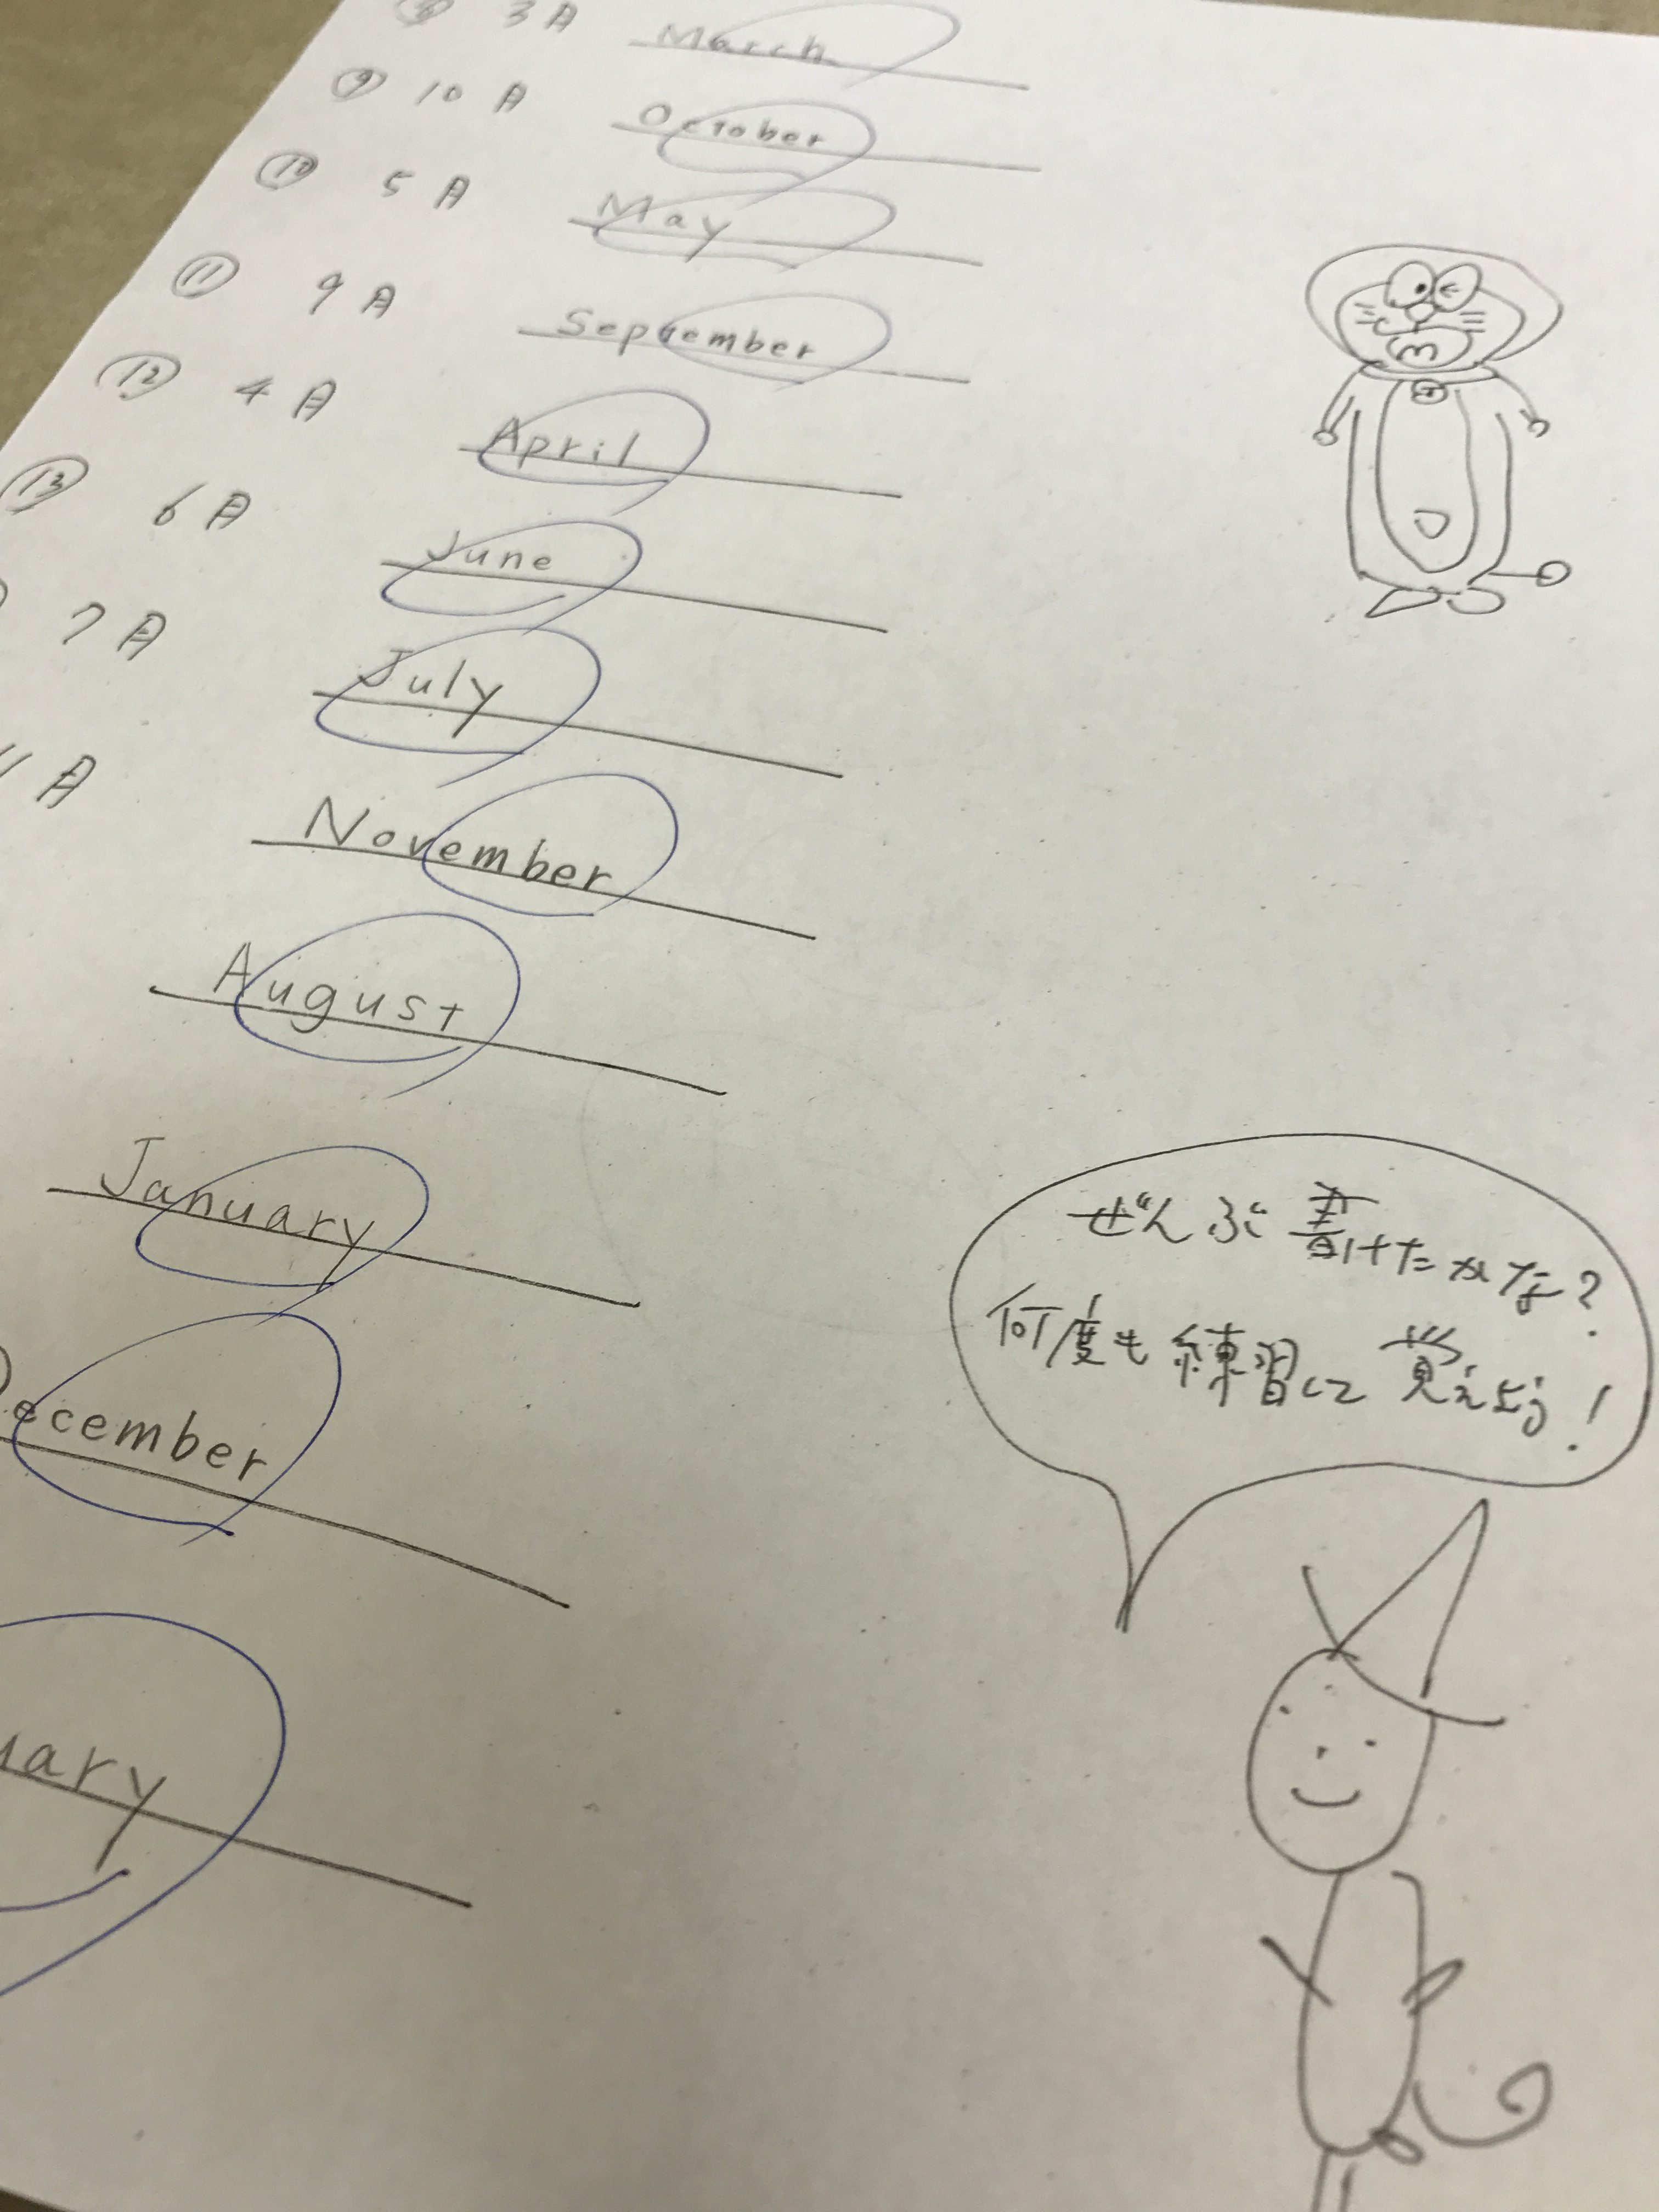 ⑧ 3月 March
⑨ 10月 October
⑩ 5月 May
⑪ 9月 September
⑫ 4月 April
⑬ 6月 June
7月 July
11月 November
August
January
December
uary
ぜんぶ書けたかな?
何度も練習して覚えよう!